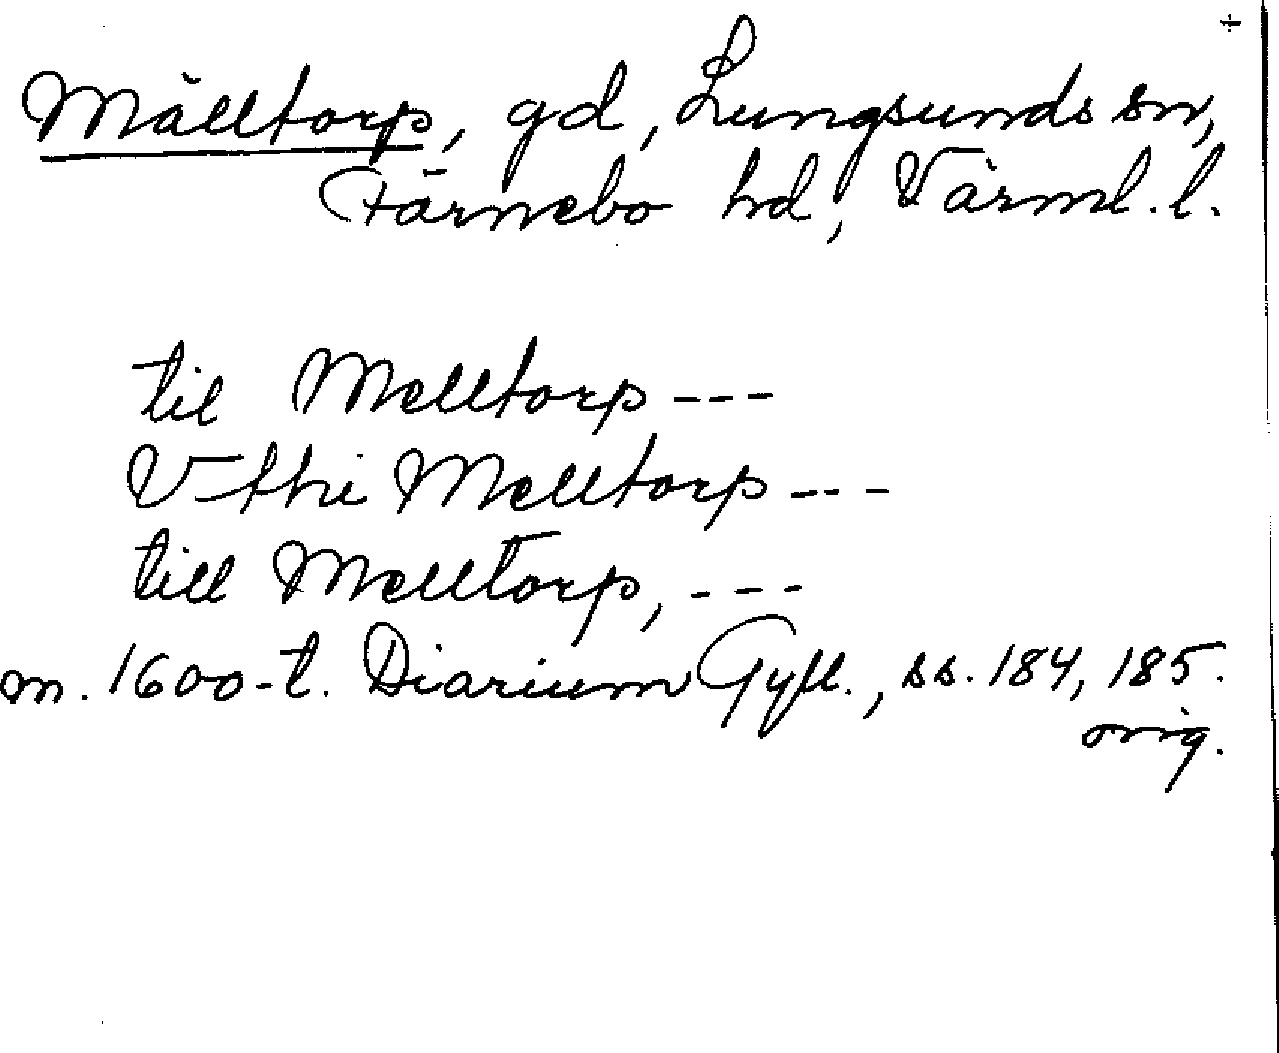 Mälltorp, gd, Lungsunds sn,
Färnebo hd, Värml. l.
til Melltorp ---
Vthi Melltorp ---
till Melltorp, ---
m. 1600-t. Diarium Gyll., ss. 184, 185.
orig.